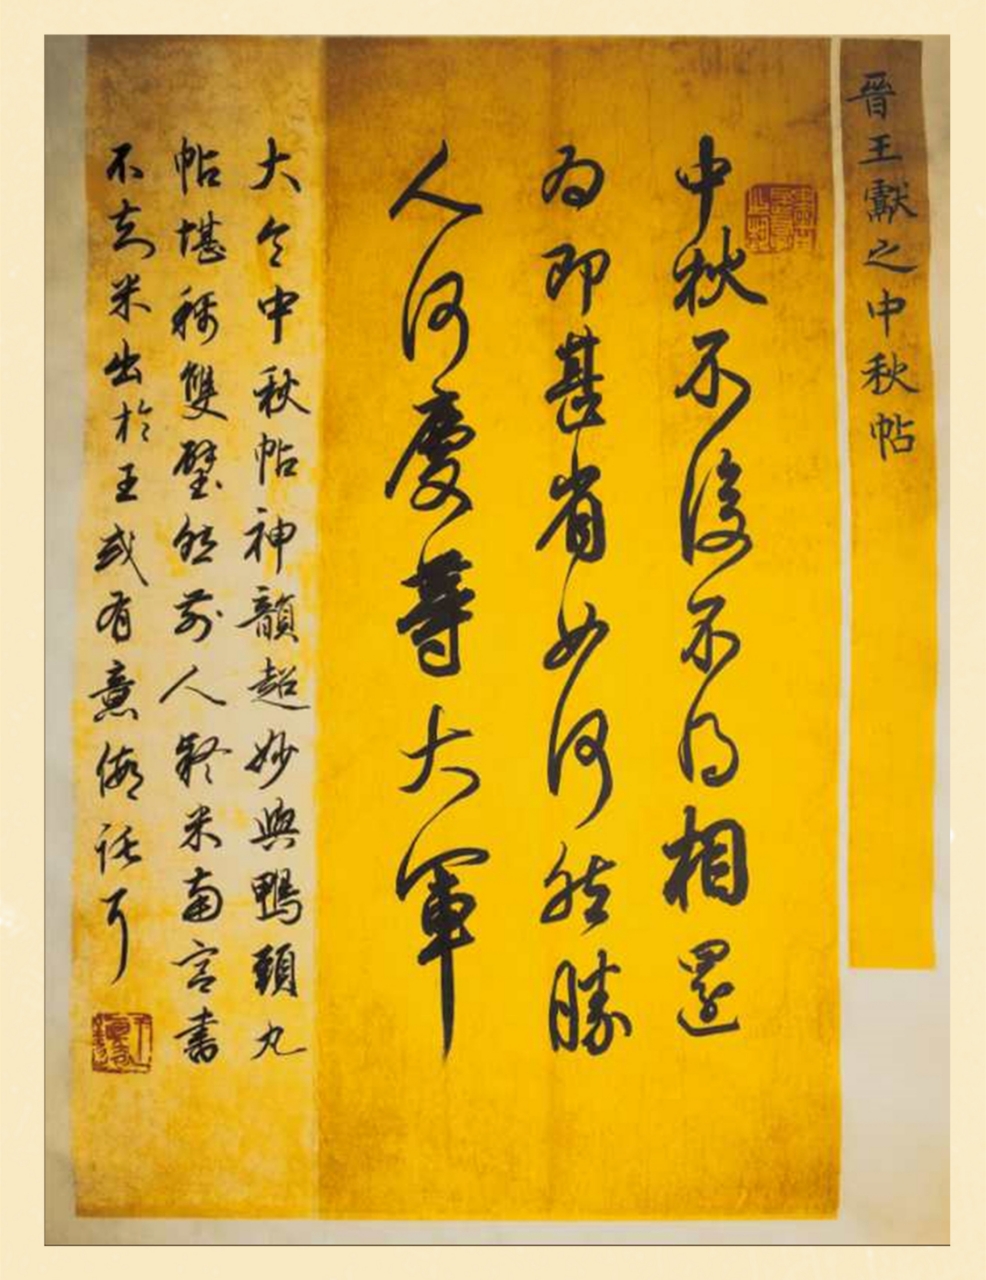 晉王獻之中秋帖
中秋不復不得相還
為即甚省如何然勝
人何慶等大軍
大令中秋帖神韻超妙與鴨頭丸
帖堪稱雙璧然前人疑米南宮書
不知米出於王或有意假託耳